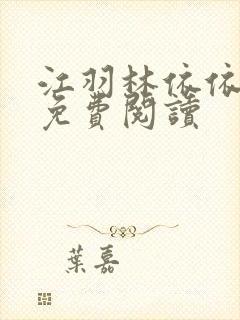 江羽林依依
免費閱讀
葉嘉